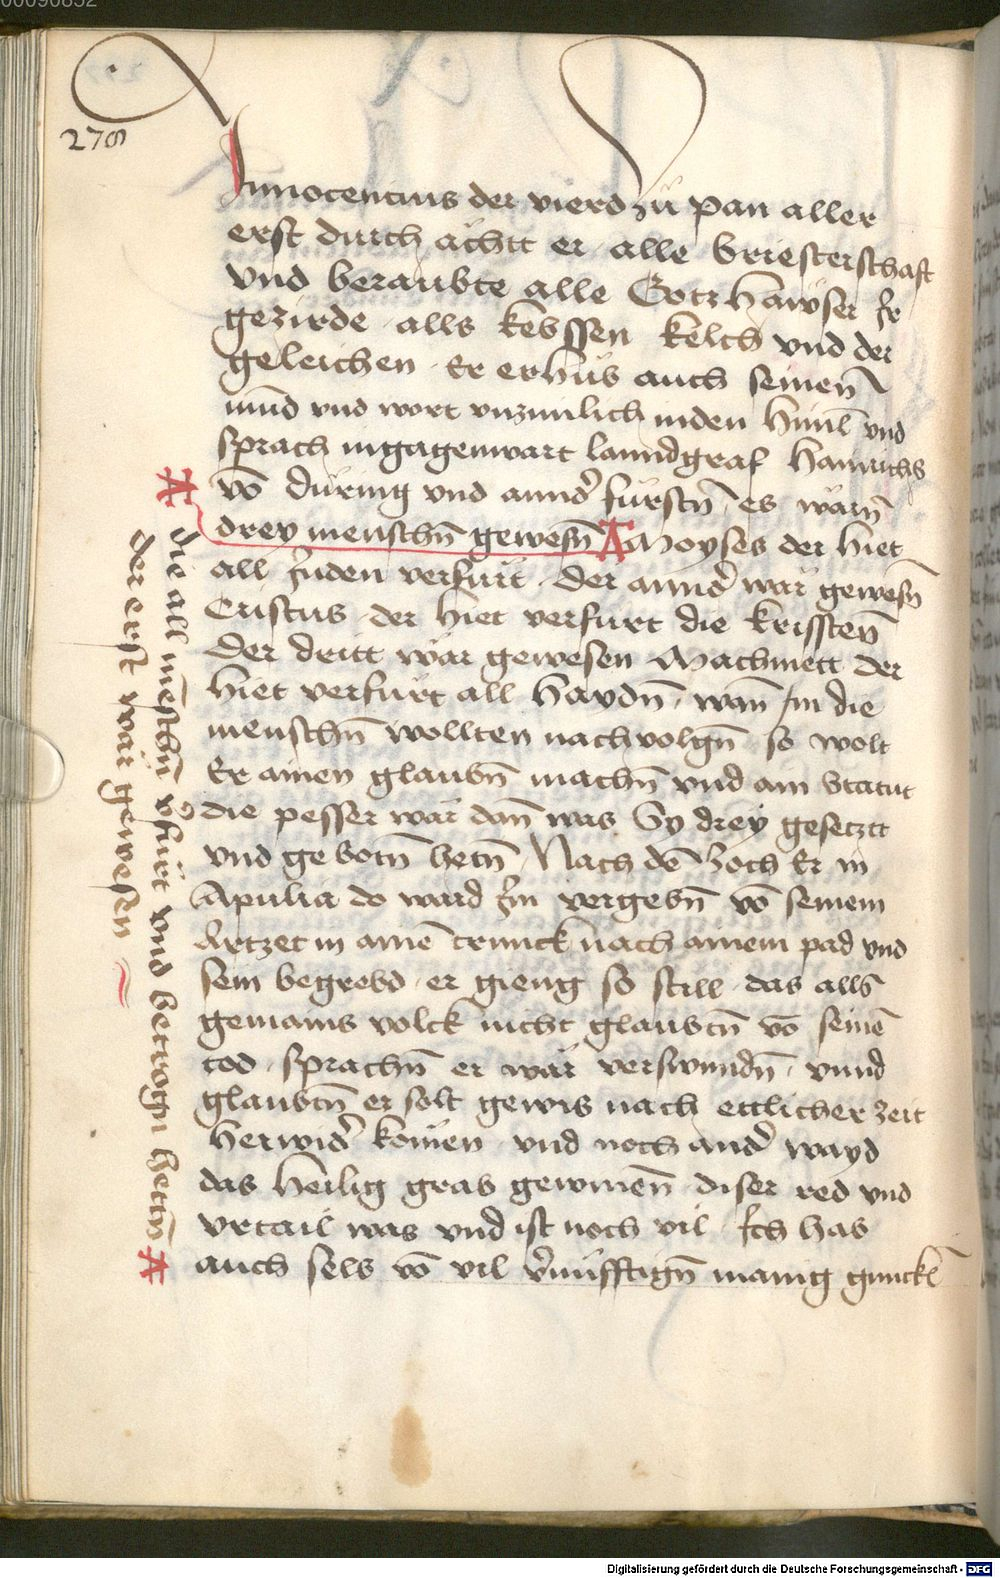 00090852
278
Innocencius der vierd zů pan aller
erst durch ächtt er alle briesterschaft
vnd beraubte alle Gotzhawser Ir
gezirde alls kebssen kelch vnd der
geleichen Er erhůb auch seinen̄
mūd vnd wort vnzimlich inden himl̄ vnd
sprach ingagenwart lanndgraf hainrichs
vō düring vnd annd̓ fürstn̄ es wärn̄
drey menschn̄ gewesn̄ A Moyses der hiet
all Juden verfürt der annd̓ wär gewesn̄
Cristus der hiet verfürt die krissten̄
Der dritt wär gewesen Machmett der
hiet verfürt all haydn̄ wan̄ Im die
menschn̄ wollten nachvolgn̄ so wolt
Er ainen glaubn̄ machn̄ vnd ain Statut
die pesser wär dan̄ was Sy drey gesetztt
vnd gebotn̄ hetn̄ Nach dē zoch Er in
Apulia do ward Im vergebn̄ vō seinem
Artzet in ainē trunck nach ainem pad vnd
sein begrebd er gieng so still das alls
gemains volck nicht glaubtn̄ vō seinē
tod sprachn̄ er wär verswundn̄ vnnd
glaubtn̄ er solt gewis nach ettlicher zeit
herwid̓ komen vnd noch and̓ wayd
das heilig grab gewinen̄ diser red vnd
vrtail was vnd ist noch vil Ich hab
auch selb vō vil v̓nüfftign̄ manig gunckl̄
A die all mēschn̄ v̓fürt vnd betrogn hettn̄ A
der erst wär gewesen
Digitalisierung gefördert durch die Deutsche Forschungsgemeinschaft - DFG